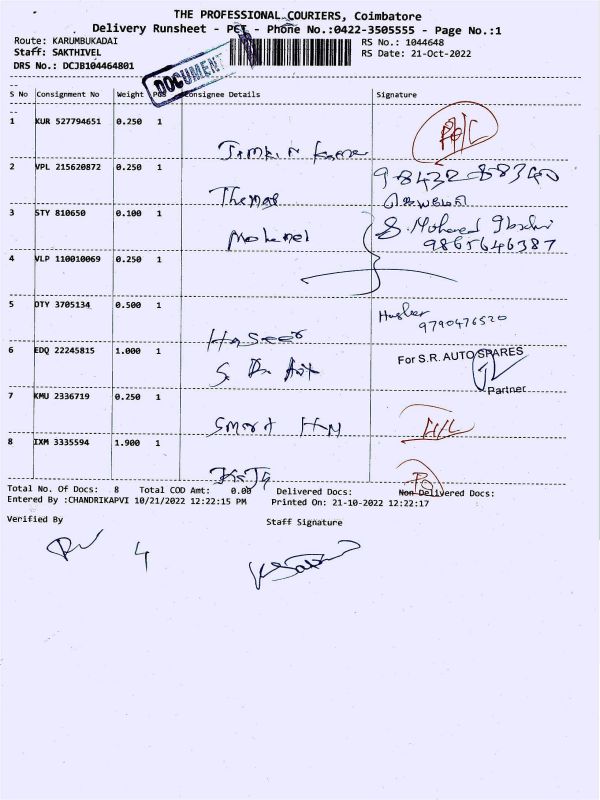 THE PROFESSIONAL COURIERS, Coimbatore
Delivery Runsheet - PCT - Phone No.:0422-3505555 - Page No.:1
Route: KARUMBUKADAI
RS No.: 1044648
Staff: SAKTHIVEL
RS Date: 21-Oct-2022
DRS No.: DCJB104464801
DOCUMENT
S No Consignment No Weight PCS Consignee Details Signature
1 KUR 527794651 0.250 1
2 VPL 215620872 0.250 1
98432 88340
Thomas
3 STY 810650 0.100 1
Mohamed
S. Mohamed
9865646387
4 VLP 110010069 0.250 1
5 DTY 3705134 0.500 1
9790476520
Haseer
6 EDQ 22245815 1.000 1
For S.R. AUTO SPARES
Partner
7 KMU 2336719 0.250 1
Smart
8 IXM 3335594 1.900 1
Total No. Of Docs: 8 Total COD Amt: 0.00 Delivered Docs: Non Delivered Docs:
Entered By :CHANDRIKAPVI 10/21/2022 12:22:15 PM Printed On: 21-10-2022 12:22:17
Verified By
Staff Signature
4